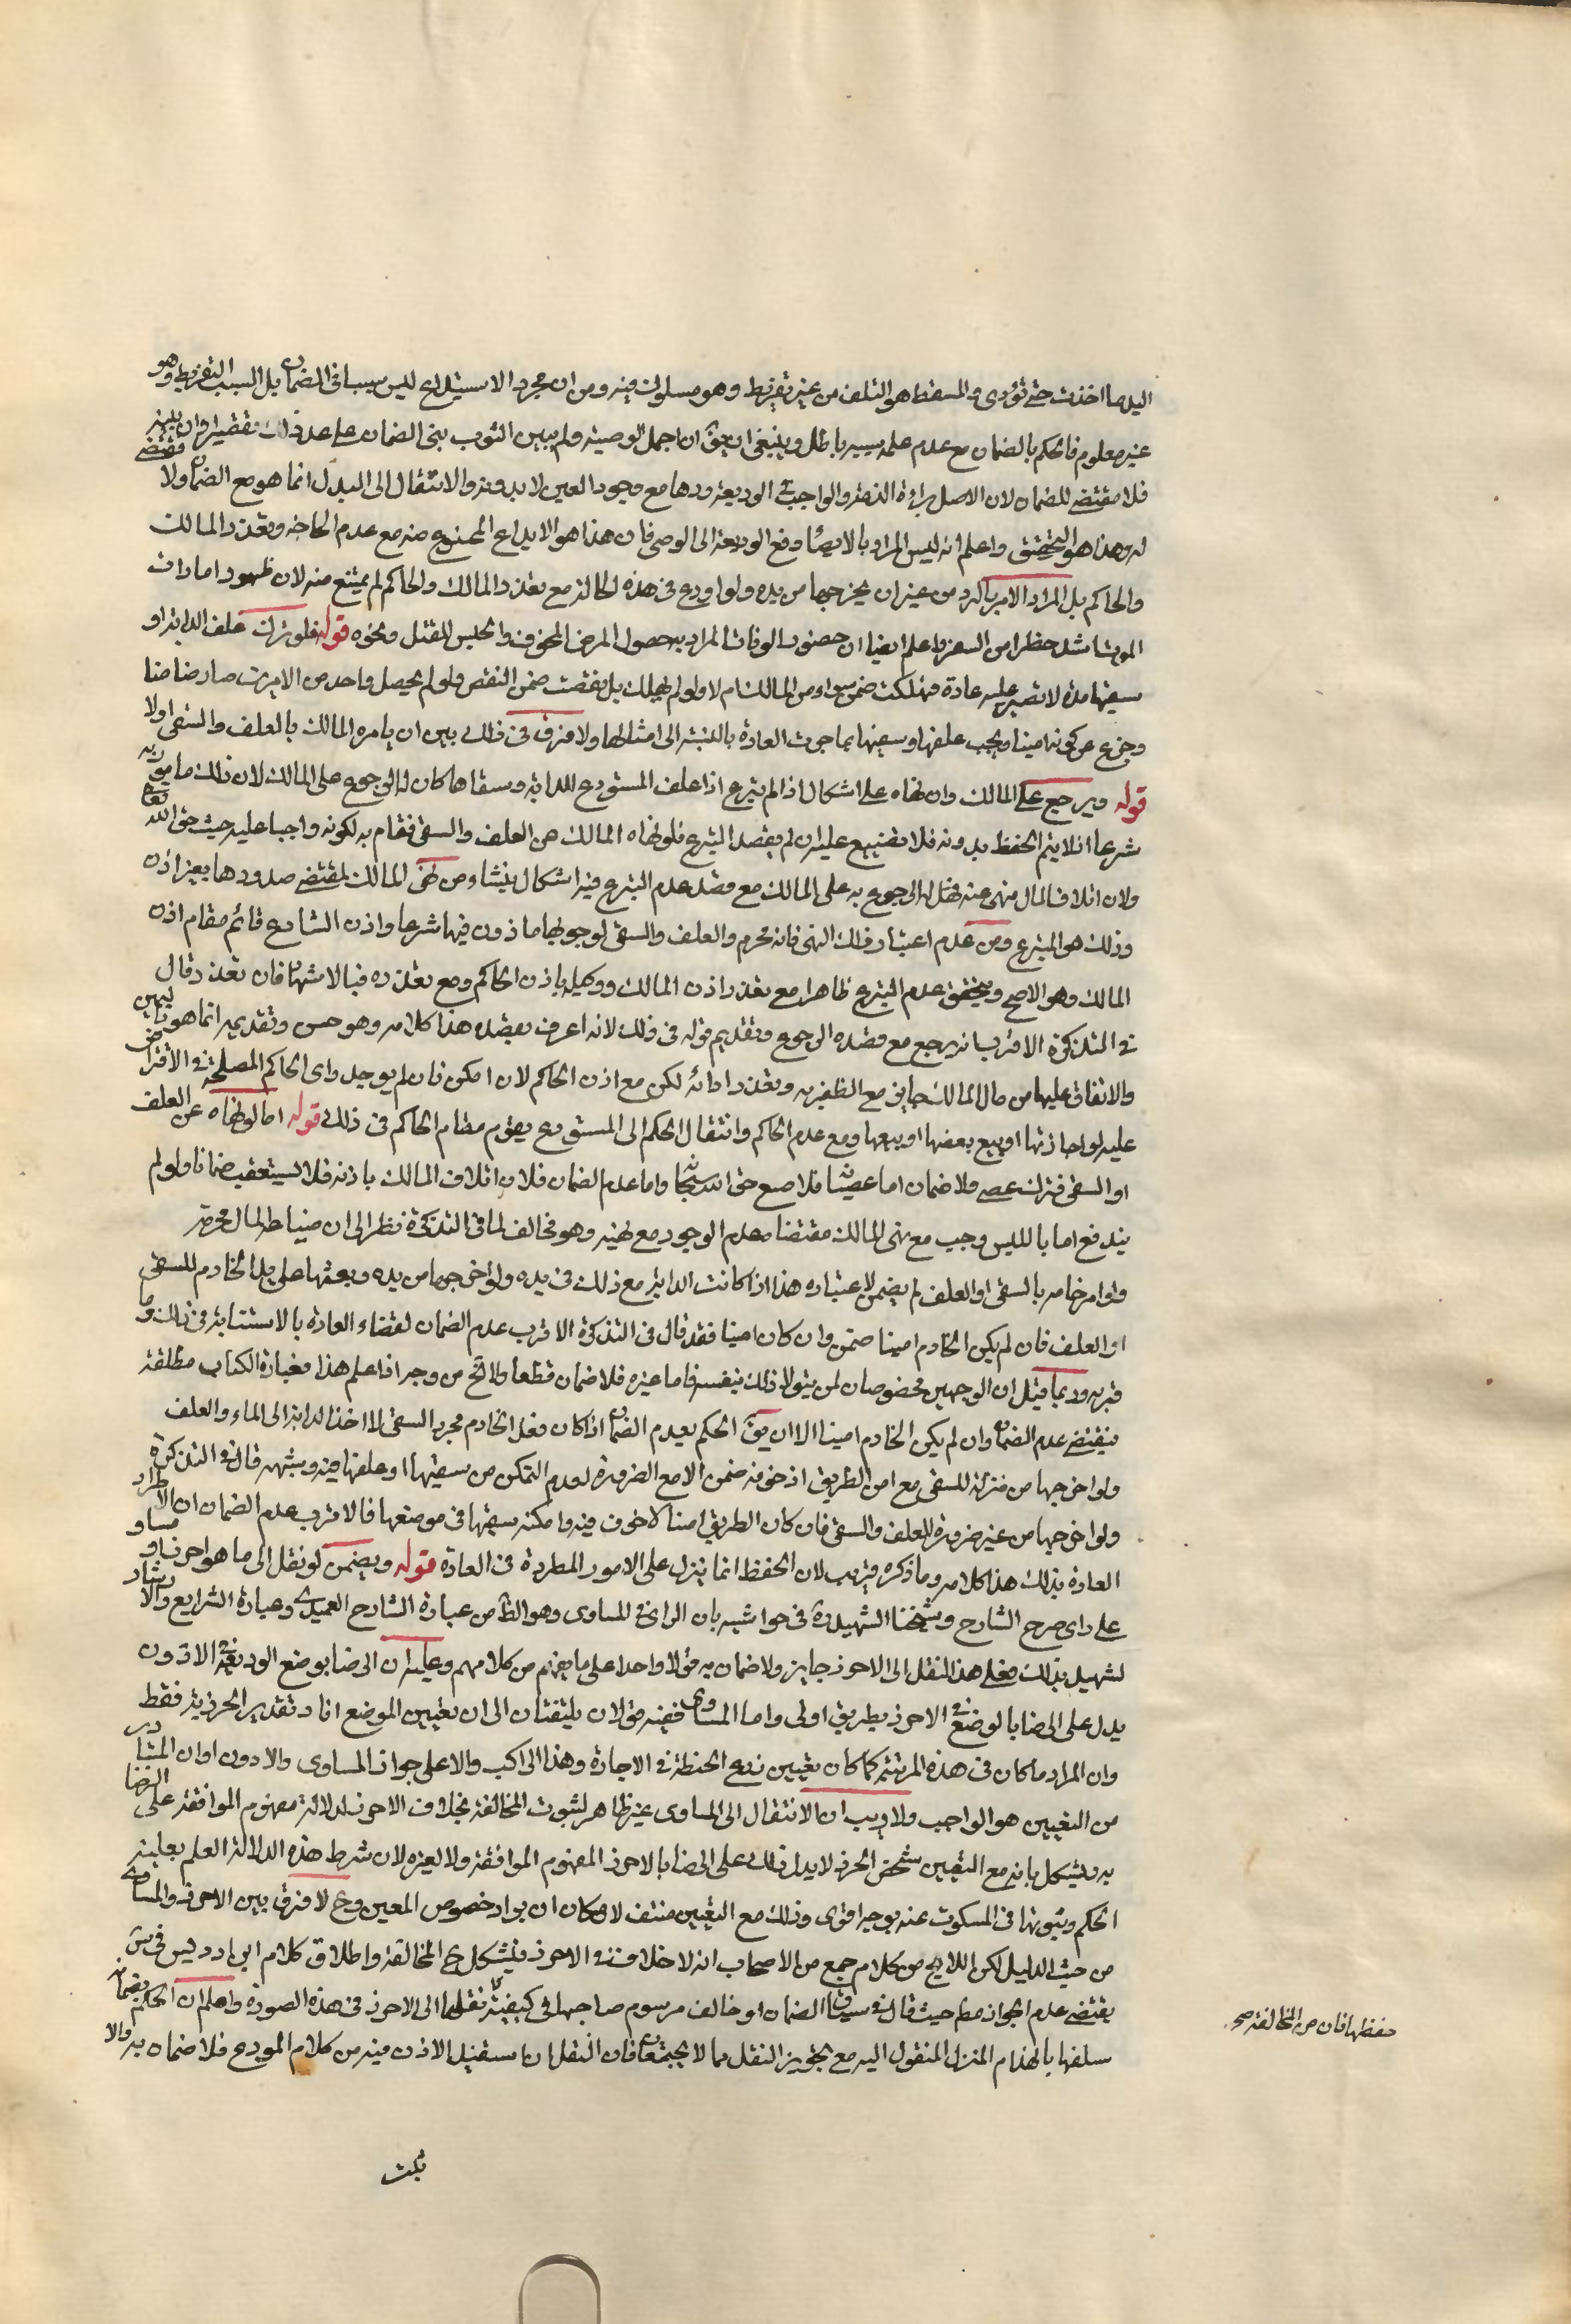 اليد ما اخذت حتى تؤدى والمسقط هو التلف من غير تفريط وهو مسلوك فيه ومن ان مجرد الاستيلاء ليس سببا فى الضمان بل السبب التفريط وهو
غير معلوم فالحكم بالضمان مع عدم علم سببه باطل وينبغى ان يق ان اجمل الوصية ولم يبين الثوب بنى الضمان على عد ذلك تقصيرا وان بينه
فلا مقتضى للضمان لان الاصل براءة الذمة والواجب فى الوديعة ردها مع وجود العين لا بدونه والانتقال الى البدل انما هو مع الضمان ولا مقتضى
له وهذا هو التحقيق واعلم انه ليس المراد بالايصاء دفع الوديعة الى الوصى فان هذا هو الايداع الممنوع منه مع عدم الحاجة وتعذر المالك
والحاكم بل المراد الامر بالرد من غير ان يخرجها من يده ولو اودع فى هذه الحالة مع تعذر المالك والحاكم لم يمتنع منه لان ظهور امارات
الموت اشد خطرا من السفر واعلم ايضا ان حضور الوفات المراد به حصول المرض المخوف والحبس للقتل ونحوه قوله فلو ترك علف الدابة او
سقيها مدة لا تصبر عليه عادة فهلكت ضمن سواء امره المالك ام لا ولو لم تهلك بل نقصت ضمن النقص ولو لم يحصل واحد من الامرين صار ضامنا
وخرج عن كونه امينا ويجب علفها وسقيها بما جرت العادة بالنسبة الى امثالها ولا فرق فى ذلك بين ان يامره المالك بالعلف والسقى او لا
قوله ويرجع على المالك وان نهاه على اشكال اذا لم يتبرع اذا علف المستودع الدابة وسقاها كان له الرجوع على المالك لان ذلك مامور به
شرعا اذ لا يتم الحفظ بدونه فلا تضييع عليه ان لم يقصد التبرع فلو نهاه المالك عن العلف والسقى فقام به لكونه واجبا عليه حيث حق الله تع
ولان اتلاف المال منهى عنه فهل له الرجوع به على المالك مع قصد عدم التبرع فيه اشكال ينشا ومن نهى المالك المقتضى صدورها بغير اذن
وذلك هو التبرع ومن عدم اعتبار ذلك النهى فانه محرم والعلف والسقى لوجوبهما ماذون فيها شرعا واذن الشارع قائم مقام اذن
المالك وهو الاصح ويتحقق عدم التبرع ظاهرا مع تعذر اذن المالك ووكيله باذن الحاكم ومع تعذره فبالاشهاد فان تعذر قال
فى التذكرة الاقرب انه يرجع مع قصده الرجوع وتقديم قوله فى ذلك لانه اعرف بقصده هذا كلامه وهو حسن وتقديمه انما هو باليمين
والانفاق عليها من مال المالك جايز مع الظفر به وتعذر اذنه لكن مع اذن الحاكم لان امكن فان لم يوجد راى الحاكم المصلحة فى الاقتراض
عليه او اجارتها او بيع بعضها او بيعها ومع عدم الحاكم وانتقال الحكم الى المستودع يقوم مقام الحاكم فى ذلك قوله اما لو نهاه عن العلف
او السقى فترك عصى ولا ضمان اما عصيانه فلا ضاعة حق الله سبحانه واما عدم الضمان فلان اتلاف المالك باذنه فلا يستعقب ضمانا ولو لم
يندفع اما بالليس وجب مع نهى المالك مقتضاه عدم الوجود مع نهيه وهو مخالف لما فى التذكرة نظرا الى ان ضياطه المال محرمة
ولو امر خامه بالسقى او العلف لم يضمن لاعتباره هذا اذا كانت الدابة مع ذلك فى يده ولو اخرجها من يده وبعثها على يد الخادم للسقى
او العلف فان لم يكن الخادم امينا ضمن وان كان امينا فقد قال فى التذكرة الاقرب عدم الضمان لقضاء العادة بالاستنابة فى ذلك وما
قربه وربما قيل ان الوجهين مخصوصان لمن يتولا ذلك بنفسه فاما غيره فلا ضمان قطعا ولا تخ من وجه اذا علم هذا فعبارة الكتاب مطلقة
فيقتضى عدم الضمان وان لم يكن الخادم امينا الا ان يق الحكم بعدم الضمان اذا كان فعل الخادم مجرد السقى لا اخذ الدابة الى الماء والعلف
ولو اخرجها من منزله للسقى مع امن الطريق اذ خوفه ضمن الا مع الضرورة لعدم التمكن من سقيها او علفها فيه وشبهه قال فى التذكرة
ولو اخرجها من غير ضرورة للعلف والسقى فان كان الطريق امنا لا خوف فيه وامكنه سقيها فى موضعها فالاقرب عدم الضمان ان لاطراد
العادة بذلك هذا كلامه وما ذكره قريب لان الحفظ انما ينزل على الامور المطردة فى العادة قوله ويضمن لو نقل الى ما هو احرز او مساو
على راى صرح الشارح وشيخنا الشهيد فى حواشيه بان الراى فى المساوى وهو الظ من عبارة الشارح العميدى وعبارة الشرايع والارشاد
تشهد بذلك فعلى هذا النقل الى الاحرز جايز ولا ضمان به قولا واحدا على ما يفهم من كلامهم وعليه ان الرضا بوضع الوديعة فى الادون
يدل على الرضا بالوضع فى الاحرز بطريق اولى واما المساوى ففيه قولان يلتفتان الى ان تعيين الموضع افاد تقدير الحرزية فقط
وان المراد ما كان فى هذه المرتبة كما كان تعيين زرع الحنطة فى الاجارة وهذا الراكب والاعلى جواز المساوى والادون او ان المتبادر
من التعيين هو الواجب ولا ريب ان الانتقال الى المساوى غير ظاهر لثبوت المخالفة بخلاف الاحرز لدلالة مفهوم الموافقة على الرضا
به ويشكل بانه مع التعيين شخص الحرز لا يدل ذلك على الرضا بالاحرز المفهوم الموافقة ولا لغيره لان شرط هذه الدلالة العلم بعلية
الحكم وثبوتها فى المسكوت عنه بوجه اقوى وذلك مع التعيين منتف لامكان ان يراد خصوص المعين وح لا فرق بين الاحرز والمساوى
من حيث الدليل لكن اللايح من كلام جمع من الاصحاب انه لا خلاف فى الاحرز فيشكل ح المخالفة واطلاق كلام ابن ادريس فى س
يقتضى عدم الجواز مطلقا حيث قال فى سياق الضمان او خالف مرسوم صاحبها فى كيفية نقلها الى الاحرز فى هذه الصورة واعلم ان الحكم بضمان
حفظها فان من المخالفة صح
سلفها بانهدام المنزل المنقول اليه مع تجويز النقل مما لا يجتمعان فان النقل ان استفيد الاذن فيه من كلام المودع فلا ضمان به والا
ثبت